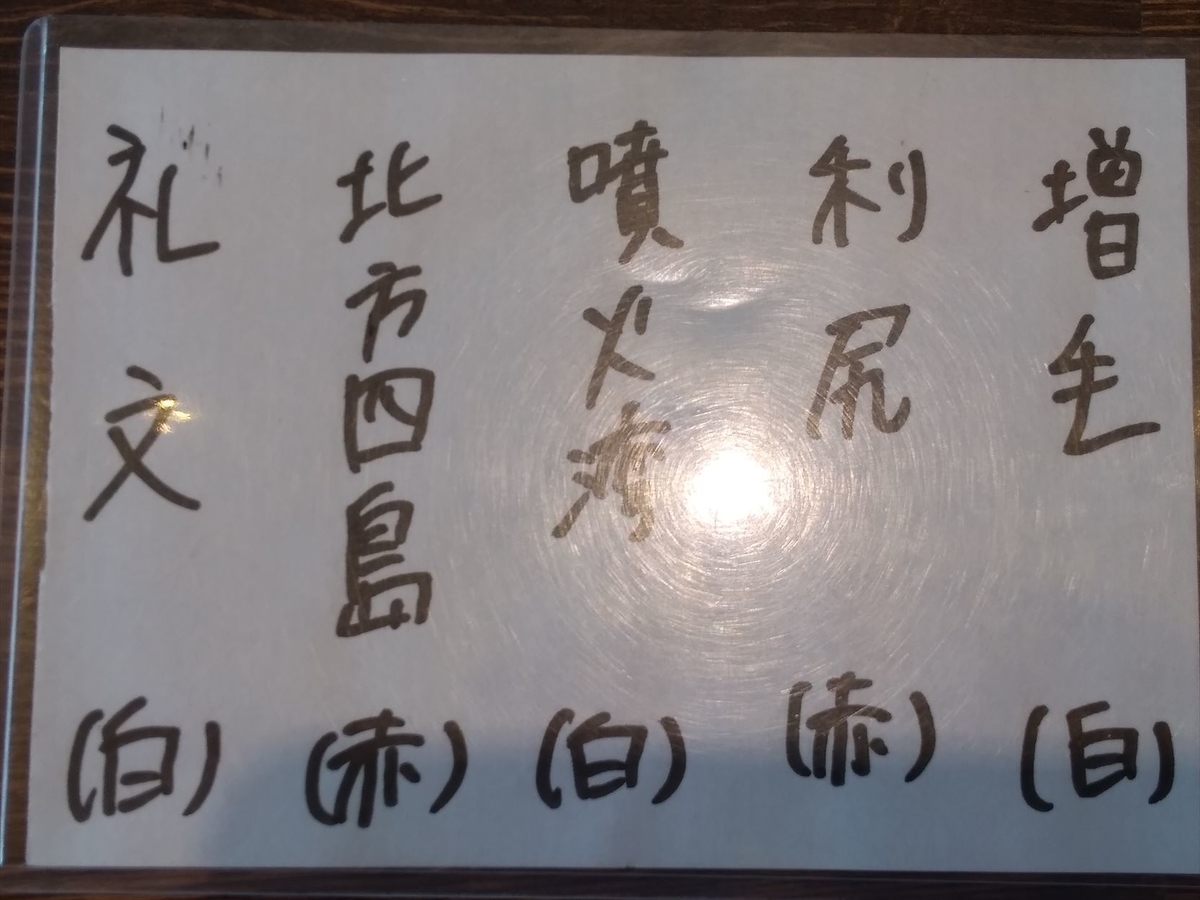 増毛(白)
利尻(赤)
噴火湾(白)
北方四島(赤)
礼文(白)